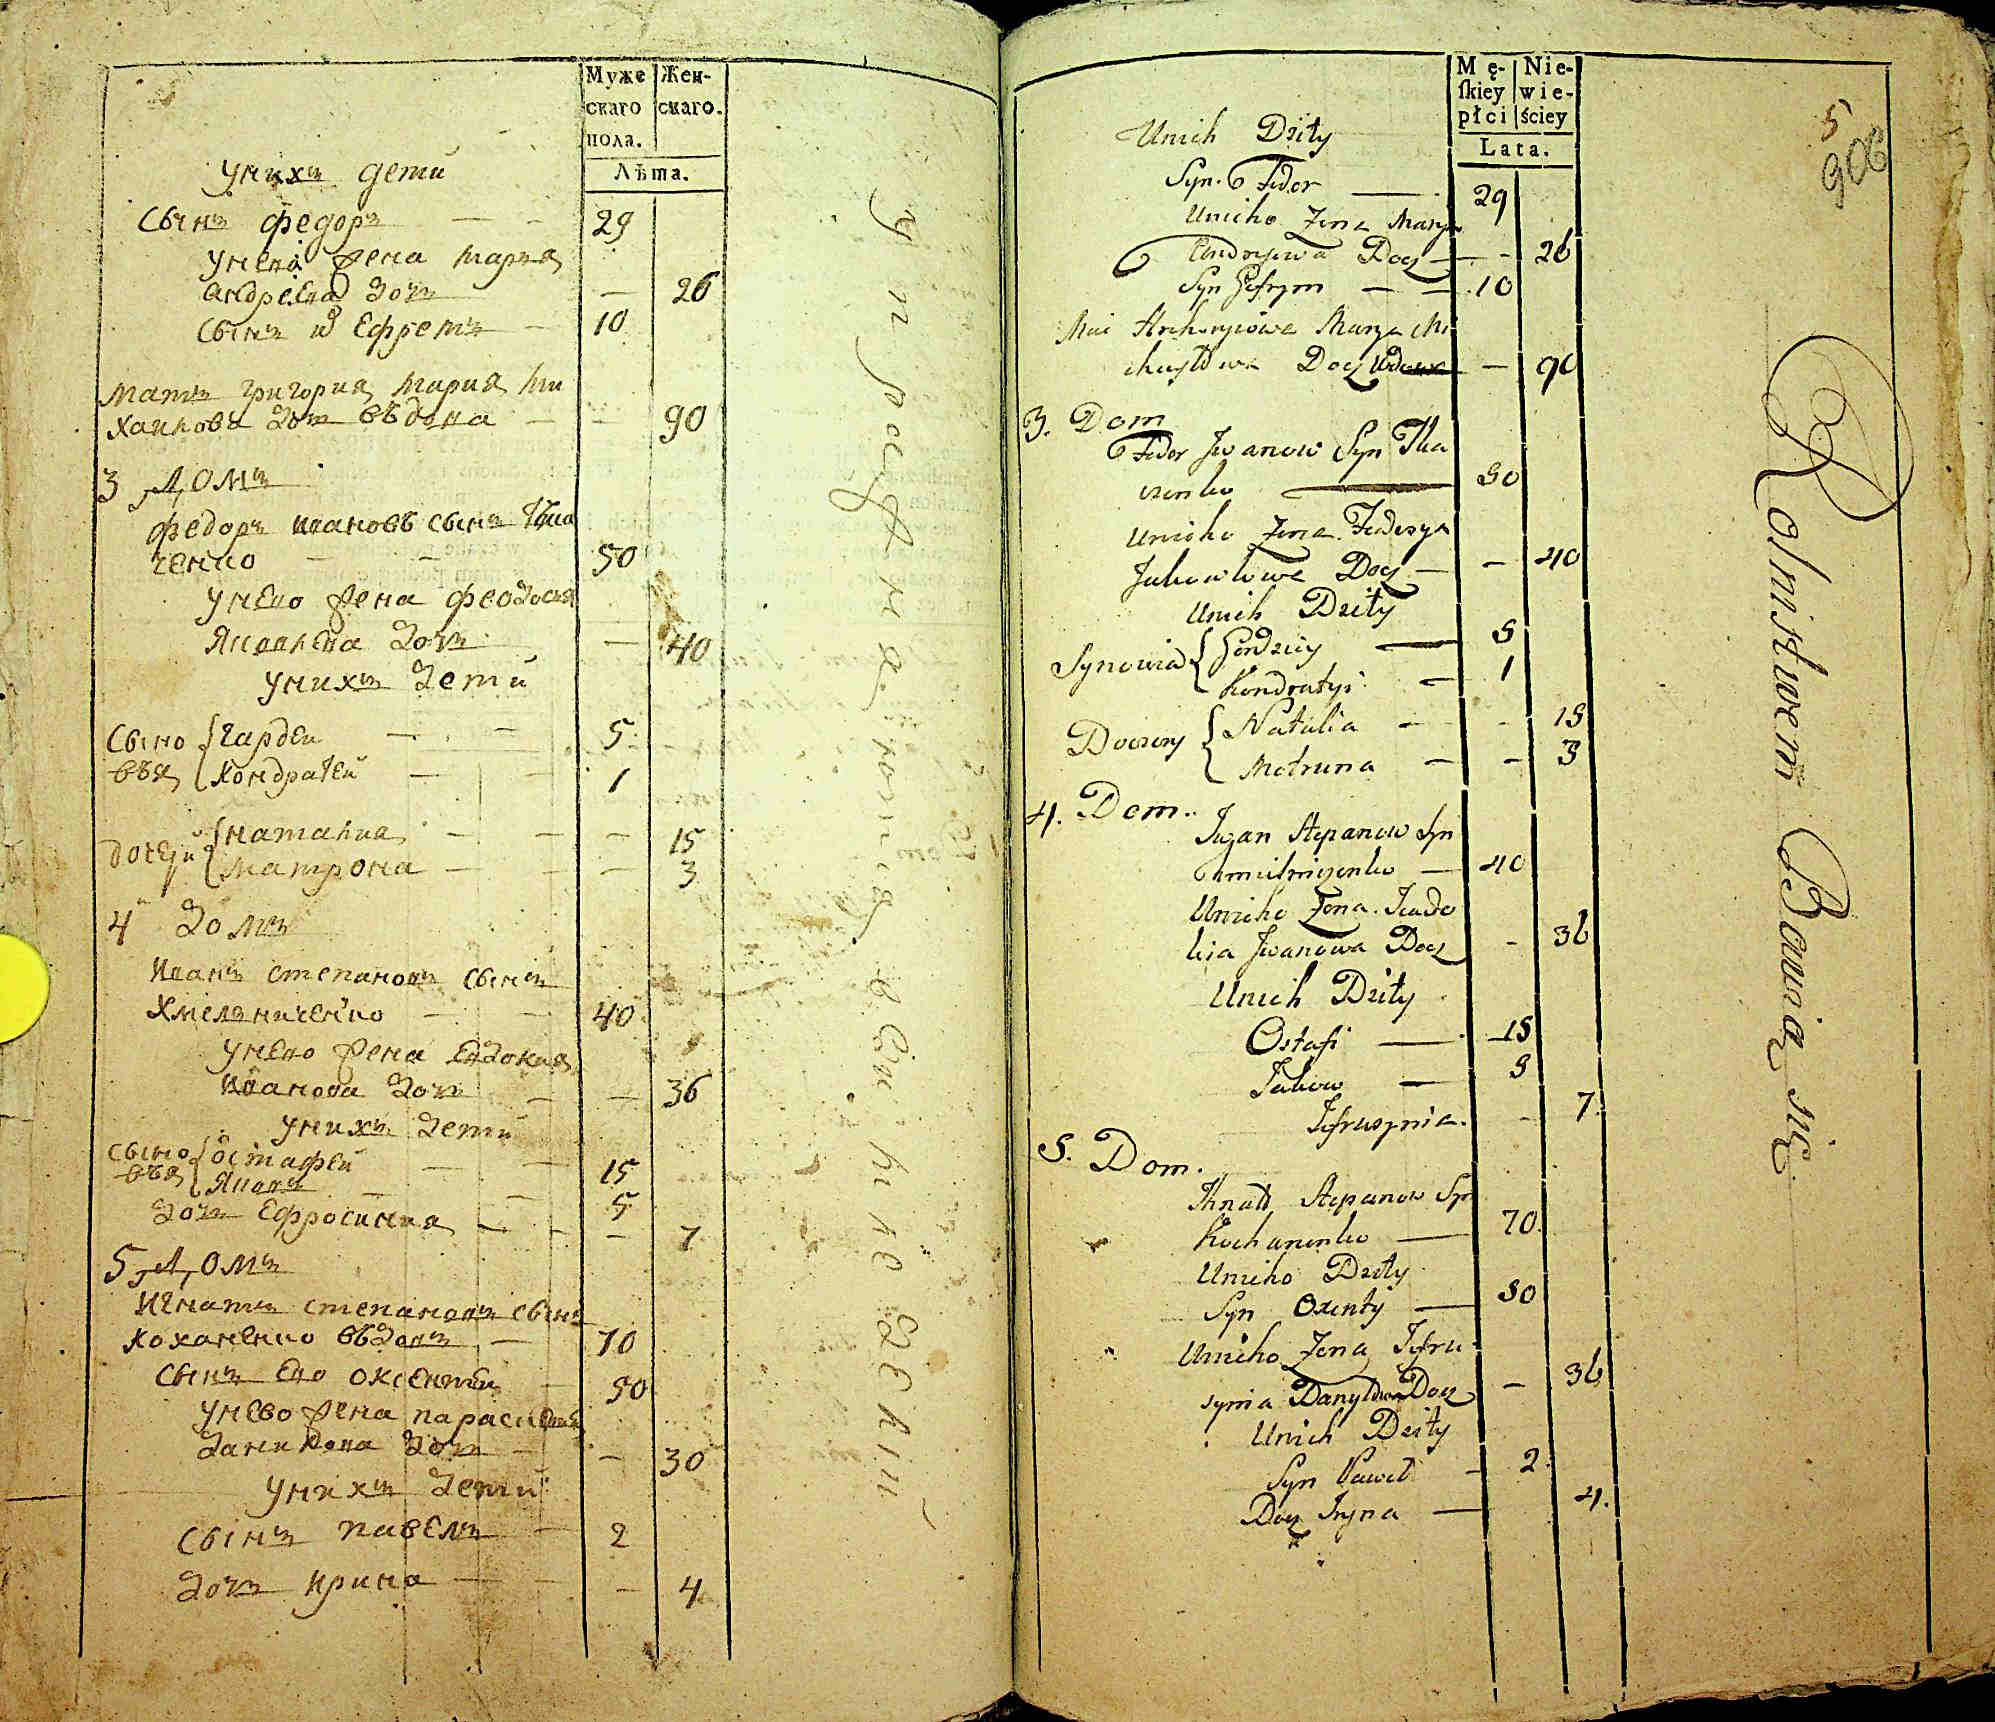 Муже
скаго
пола.
Жен-
скаго.
Лѣта.
Унихъ дети
Сынъ федоръ — — 29
Унево жена мария
андреева дочъ — 26
Сынъ Ефремъ — 10
Матъ григория мария ми
хаилова доч въдова — — 90
3 Домъ
федоръ ивановъ сынъ тка
ченко — — 50
Унево жена феодосия
Яковлева дочъ — 40
Унихъ дети
Сыно
вья
гардеи — — 5
кондратеи — — 1
дочери
наталия — — — 15
матрона — — — 3
4 домъ
иванъ степановъ сынъ
хмелниченко — — 40
Унево жена евдокия
иванова доч — — 36
Унихъ дети
Сыно
вья
остафеи — — 15
Яковъ — — 5
дочъ Ефросиния — — — 7
5 Домъ
игнатъ степановъ сынъ
коханенко въдовъ — 70
Сынъ Ево оксентеи — 50
Унево жена параскевия
данилова доч — — 30
Унихъ дети
Сынъ павелъ — 2
дочъ ирина — — — 4
Упражняютця въ хлебопашестве
Mę-
ſkiey
płci
Nie-
wie-
ściey
Lata.
5
906
Unich Dzity
Syn Fedor — 29
Unieho Zona Marya
Andryiowa Docz — - 26
Syn Jefrym — — 10
Mać Hrehoryiowa Marya Mi
chayłowa Docz Wdowa — 90
3. Dom
Fedor Jwanow Syn Tka
czenko — 50
Unieho Zona Fedosya
Jakowlowa Docz — — 40
Unich Dzity
Synowia
Hordziey — 5
Kondratyi — 1
Doczery
Natalia — - 15
Motruna — — 3
4. Dom.
Jwan Stepanow Syn
Chmielniczenko — 40
Unieho Zona Jewdo
kia Jwanowa Docz - 36
Unich Dzity
Ostafi — 15
Jakow — 5
Jefrosynia. - 7
5. Dom.
Ihnatt Stepanow Syn
Kochanenko — 70
Unieho Dzity
Syn Oxenty — 50
Unieho Zona Jefro
synia Danyłowa Docz — 36
Unich Dzity
Syn Paweł - 2
Docz Iryna — 4.
Rolnistwem Bawią się